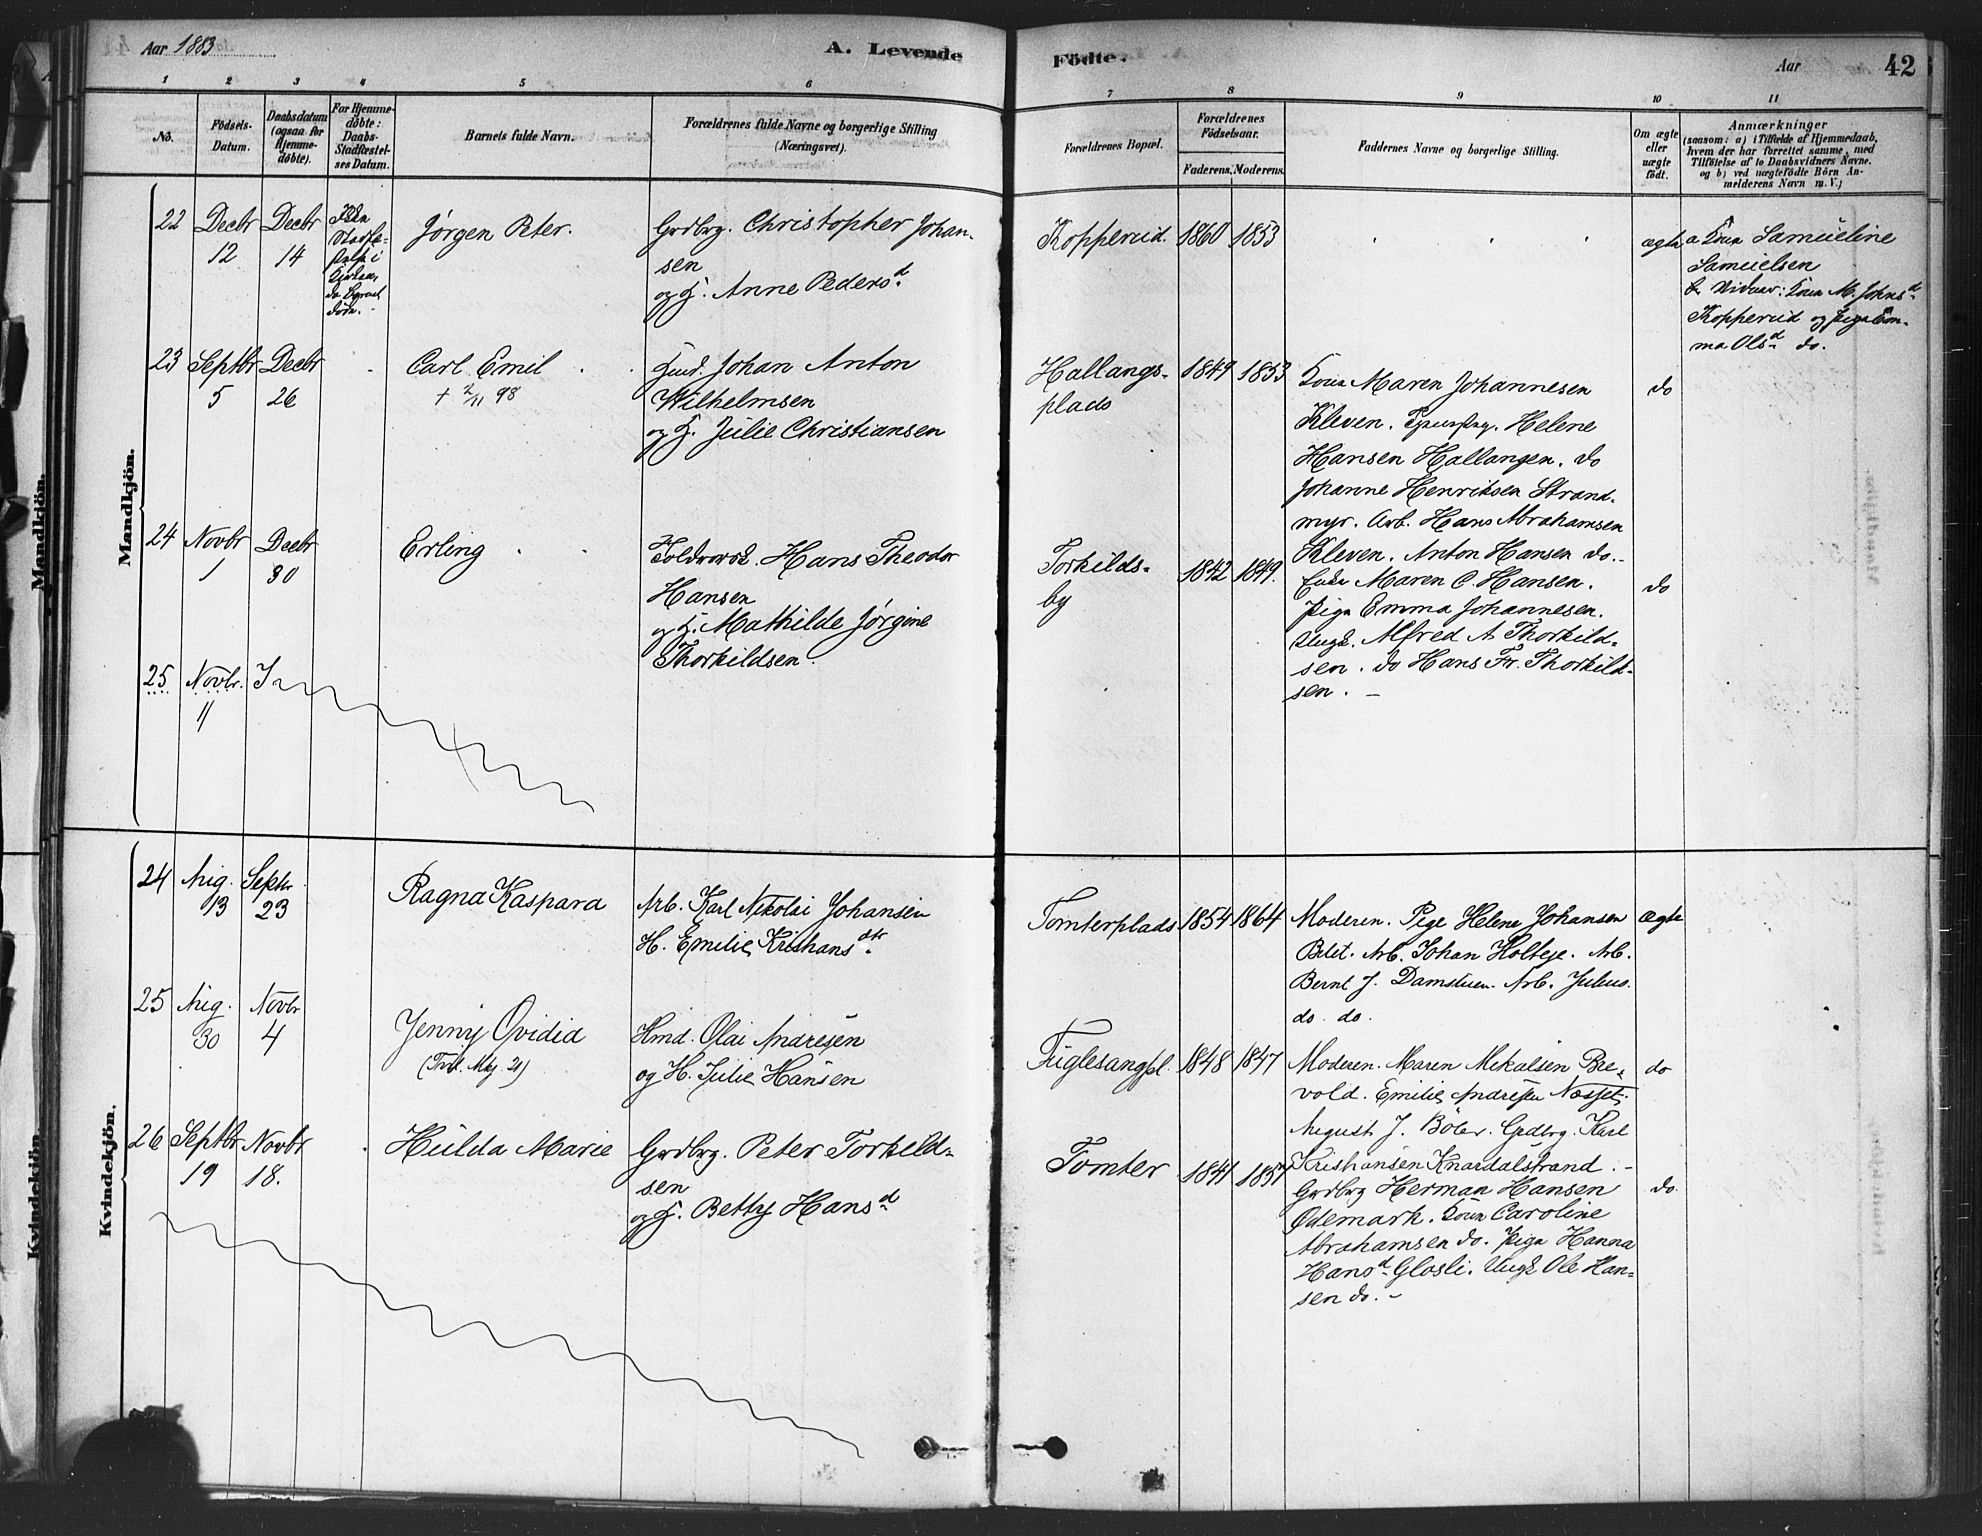 Aar 1883
A. Levende
Födte.
Aar
42
1 2 3 4 5 6 7 8 9 10 11
No.
Födsels-
Datum.
Daabsdatum
(ogsaa for
Hjemme-
döbte).
For Hjemme-
döbte:
Daabs-
Stadfæstel-
ses Datum.
Barnets fulde Navn.
Forældrenes fulde Navne og borgerlige Stilling
(Næringsvei).
Forældrenes Bopæl.
Forældrenes
Födselsaar.
Faderens. Moderens.
Faddernes Navne og borgerlige Stilling.
Om ægte
eller
uægte
födt.
Anmærkninger
(saasom: a) i Tilfælde af Hjemmedaab,
hvem der har forrettet samme, med
Tilföielse af to Daabsvidners Navne.
og b) ved uægtefödte Börn An-
melderens Navn m. V.)
Mandkjön.
22 Decbr 12 Decbr 14
Jørgen Peter.
Grdbrg. Christopher Johan-
sen
og H. Anne Pedersd.
Kopperud. 1860 1853
ægte
a Kone Samueline
Samuelsen
Kone M. Johnsd.
Kopperud og Pige Em-
ma Olsd. do.
23 Septbr 5 Decbr 26
Carl Emil
+ 2/11 98
Johan Anton
Wilhelmsen
og H. Julie Christiansen
Hallangs-
plads
1849 1853
Kone Maren Johannesen
Kleven. Helene
Hansen Hallangen. do
Johanne Henriksen Strand-
myr. Arb. Hans Abrahamsen
Kleven. Anton Hansen do.
do
24 Novbr 1 Decbr 30
Erling
Hans Theodor
Hansen
og H. Mathilde Jørgine
Thorkildsen.
Torkilds-
by
1842 1849.
Maren C. Hansen.
Pige Emma Johannesen.
Ungk. Alfred A. Thorkild-
sen. do Hans Fr. Thorkild-
sen. —
do
25 Novbr. 11
Kvindekjön.
24 Aug. 13 Septr 23
Ragna Kaspara
Arb. Karl Nikolai Johansen
H. Emilie Kristiansdtr.
Tomterplads 1854 1864
Moderen. Pige Helene Johansen
Arb. Johan Holteje. Arb.
Bernt J. Damstuen. Arb. Julius
do. do.
ægte
25 Aug. 30 Novbr 4
Jenny Ovidia
Hmd. Olai Andresen
og H. Julie Hansen
Fuglesangpl. 1848 1847
Moderen. Maren Mikalsen Bre-
vold. Emilie Andresen Nesset.
August J. Böler. Grdbrg. Karl
Kristiansen Knardalstrand. -
do
26 Septbr 19 Novbr 18.
Hulda Marie
Grdbrg. Peter Torkild-
sen
og H. Betty Hansd
Tomter 1841 1857
Grdbrg Herman Hansen
Ødemark. Kone Caroline
Abrahamsen do. Pige Hanna
Hansd Glosli. Ungk Ole Han-
sen do. -
do.